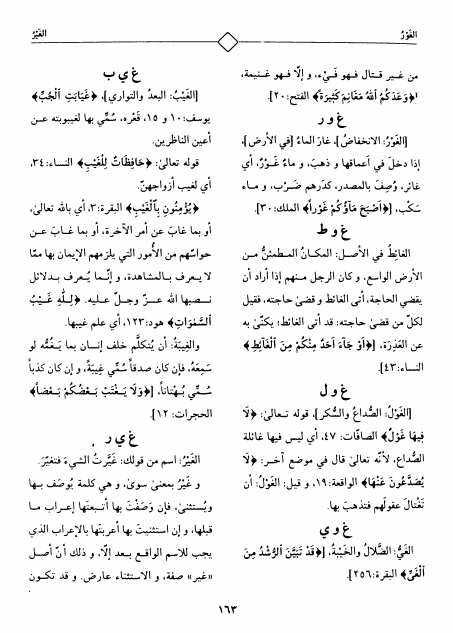 الغَوْرُ
الغَيْرُ
من غير قتال فهو فَيْء، و إلّا فهو غنيمة،
﴿وَعَدَكُمُ ٱللَّهُ مَغَانِمَ كَثِيرَةً﴾ الفتح:٢٠].
غ و ر
[الغَوْرُ: الانخفاضُ]، غارَ الماءُ [في الأرض]،
إذا دخلَ في أعماقها و ذهبَ، و ماءٌ غَوْرٌ، أي
غائر، وُصِفَ بالمصدر، كدرهم ضَرْب، و ماء
سَكْب، [﴿أَصْبَحَ مَآؤُكُمْ غَوْراً﴾ الملك:٣٠].
غ و ط
الغائِطُ في الأصل: المكانُ المطمئنُّ من
الأرض الواسع، و كان الرجل منهم إذا أراد أن
يقضي الحاجة، أتى الغائط و قضىٰ حاجته، فقيل
لكلّ من قضىٰ حاجته: قد أتى الغائط؛ يكنّى به
عن العَذِرَة، [﴿أَوْ جَآءَ أَحَدٌ مِنْكُمْ مِنَ ٱلْغَآئِطِ﴾
النساء:٤٣].
غ و ل
[الغَوْل: الصُّداعُ والسُّكر]، قوله تعالىٰ: ﴿لَا
فِيهَا غَوْلٌ﴾ الصافّات: ٤٧، أي ليس فيها غائلة
الصُّداع، لأنّه تعالىٰ قال في موضع آخر: ﴿لَا
يُصَدَّعُونَ عَنْهَا﴾ الواقعة:١٩، و قيل: الغَوْلُ: أن
تَغْتالَ عقولَهم فتذهبَ بها.
غ و ي
الغَيُّ: الضَّلالُ والخَيبةُ، [﴿قَدْ تَبَيَّنَ ٱلرُّشْدُ مِنَ
ٱلْغَيِّ﴾ البقرة:٢٥٦].
غ ي ب
[الغَيْبُ: البعدُ والتواري]، ﴿غَيَابَتِ ٱلْجُبِّ﴾
يوسف:١٠ و ١٥، قَعْره، سُمِّي بها لغيبوبته عن
أعين الناظرين.
قوله تعالىٰ: ﴿حَافِظَاتٌ لِلْغَيْبِ﴾ النساء:٣٤،
أي لغيب أزواجهنّ.
﴿يُؤْمِنُونَ بِٱلْغَيْبِ﴾ البقرة:٣، أي بالله تعالىٰ،
أو بما غابَ عن أمر الآخرة، أو بما غابَ عن
حواسّهم من الأمور التي يلزمهم الإيمان بها ممّا
لا يعرف بالمشاهدة، و إنّما يُعرف بدلائل
نصبها الله عزّ وجلّ عليه. ﴿لِلَّهِ غَيْبُ
ٱلسَّمٰوَاتِ﴾ هود:١٢٣، أي علم غيبها.
والغِيبةُ: أن يُتكلّم خلف إنسان بما يَغُمّه لو
سَمِعَهُ، فإن كان صدقاً سُمِّي غِيبَةً، و إن كان كذباً
سُمِّي بُهْتاناً، [﴿وَلَا يَغْتَبْ بَعْضُكُمْ بَعْضاً﴾
الحجرات: ١٢].
غ ي ر
الغَيْرُ: اسم من قولك: غَيَّرتُ الشيءَ فتغيّرَ.
و غَيْرُ بمعنىٰ سوىٰ، و هي كلمة يُوصَف بها
ويُستثنىٰ، فإن وَصَفْتَ بها أتبعتَها إعراب ما
قبلها، و إن استثنيتَ بها أعربتَها بالإعراب الذي
يجب للاسم الواقع بعد إلّا، و ذلك أنّ أصل
«غير» صفة، و الاستثناء عارض. و قد تكون
١٦٣